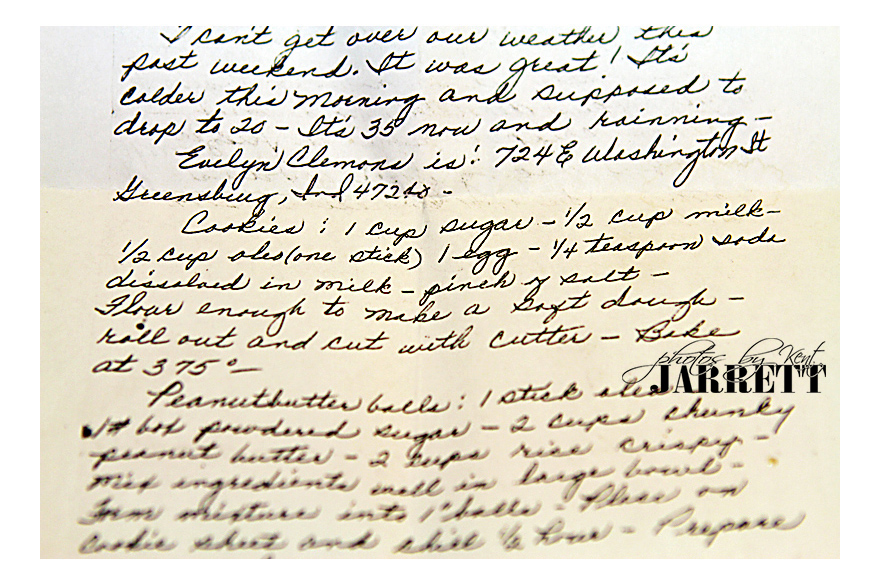 I can't get over our weather this
past weekend. It was great! It's
colder this morning and supposed to
drop to 20 - It's 35 now and rainning -
Evelyn Clemons is: 724 E Washington St
Greensburg, Ind 47240 -
Cookies: 1 cup sugar - 1/2 cup milk -
1/2 cup oleo (one stick) 1 egg - 1/4 teaspoon soda
dissolved in milk - pinch of salt -
Flour enough to make a soft dough -
roll out and cut with cutter - Bake
at 375° -
photos by Kent
JARRETT
Peanutbutter balls: 1 stick oleo
1# box powdered sugar - 2 cups chunky
peanut butter - 2 cups rice crispy -
mix ingredients well in large bowl -
Form mixture into 1" balls - Place on
cookie sheet and chill 1/2 hour - Prepare